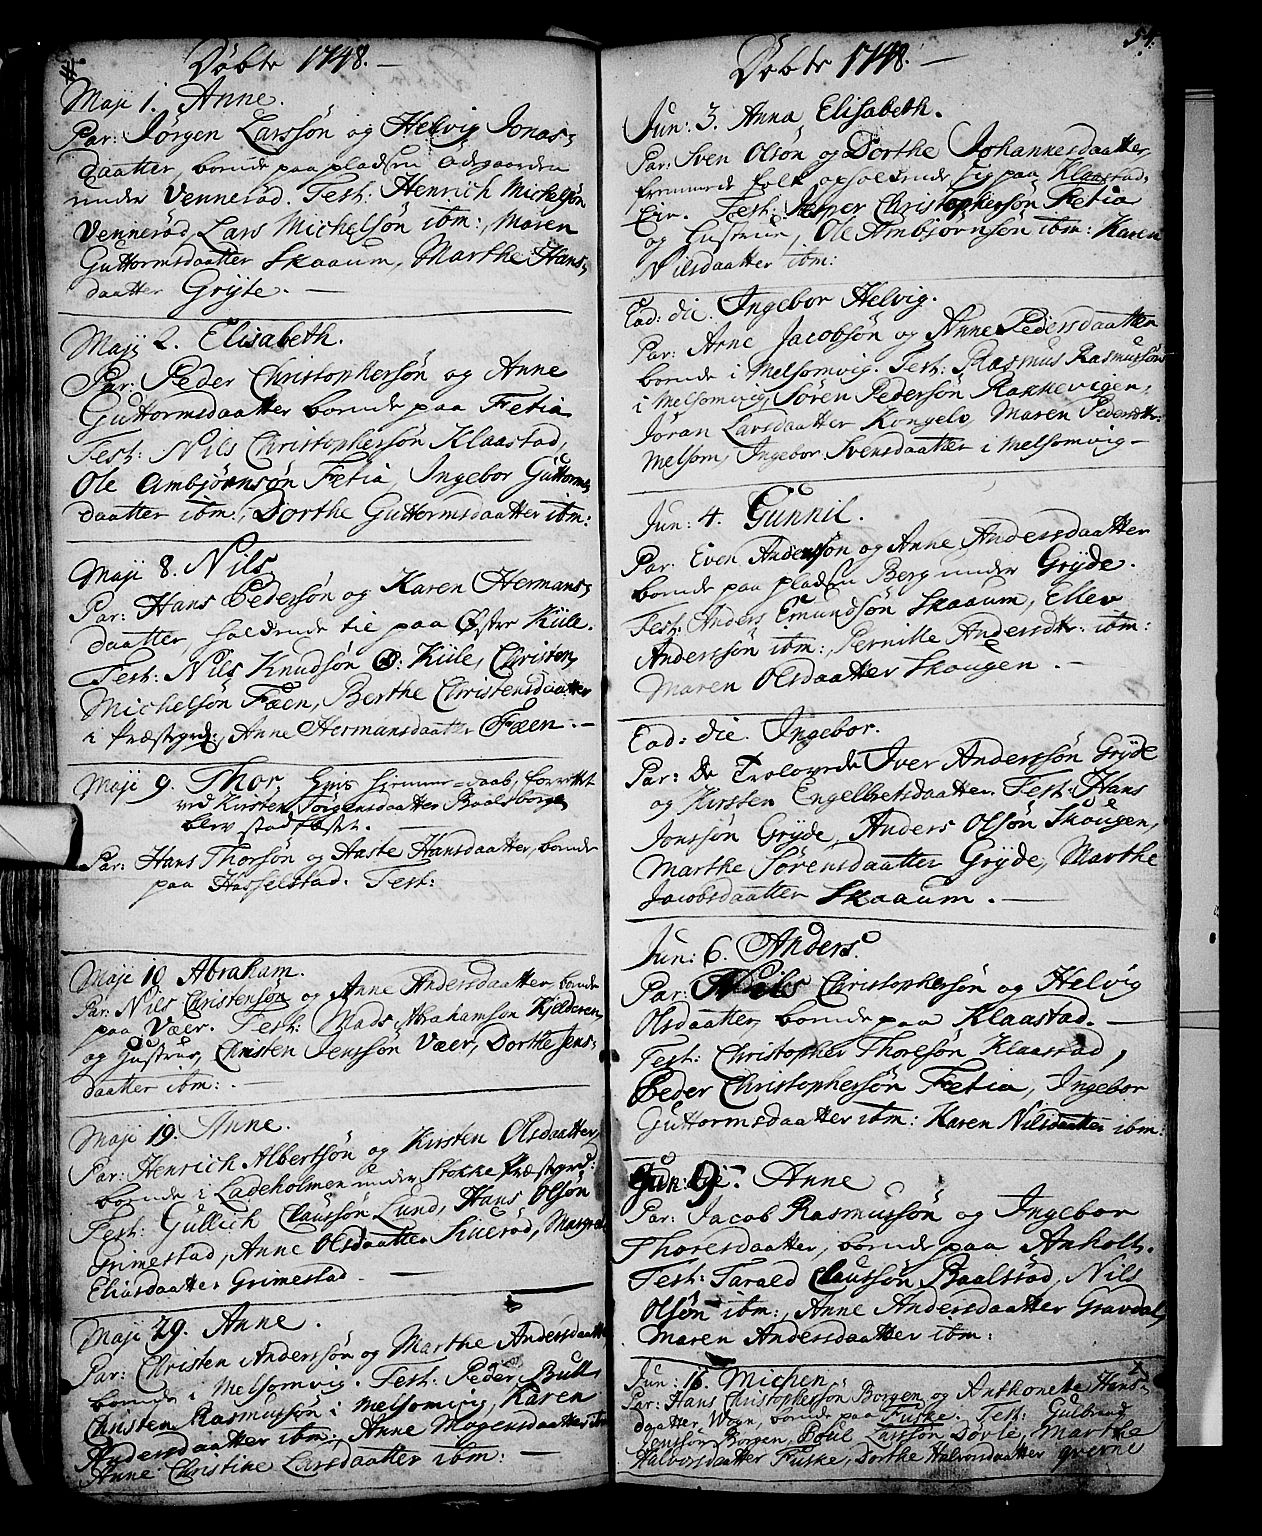 Döbte 1748. —
Maji 1. Anne.
Par: Jörgen Larssön og Helvig Jonas-
daatter, boende paa pladsen Ödgaarden
under Vennerød. Test: Henrich Michelsön
Vennerød, Lars Michelsön ibm:, Maren
Guttormsdaatter Skaaum, Marthe Hans-
daatter Gryte. —
Maji 2. Elisabeth.
Par: Peder Christophersön og Anne
Guttormsdaatter boende paa Fetia
Test: Nils Christophersön Klaastad,
Ole Ambjörnsön Fetia, Ingebor Guttorms-
daatter ibm:, Dorthe Guttormsdaatter ibm:
Maji 8. Nils.
Par: Hans Pedersön og Karen Hermans-
daatter, holdende til paa Østre Kiile.
Test: Nils Knudsön Ø: Kiile, Christen
Michelsön Faen, Berthe Christensdaatter
i Præstgrd:, Anne Hermansdaatter Faen. —
Maji 9. Thor, hvis hiemme-daab, forrettet
ved Kirsten Jörgensdaatter Baalsborge,
blev stadfæstet.
Par: Hans Thorsön og Aaste Hansdaatter, boende
paa Hasselstad. Test:
Maji 10. Abraham.
Par: Nils Christensön og Anne Andersdaatter, boende
paa Væer. Test: Mads Abrahamsön Kjelderen,
og Hustrue, Christen Jenssön Væer, Dorthe Jens-
daatter ibm: —
Maji 19. Anne.
Par: Henrich Albertsön og Kirsten Olsdaatter,
boende i Ladeholmen under Stokke Præstgrd:
Test: Gullich Claussön Lund, Hans Olsön
Grimestad, Anne Olsdaatter
Eliasdaatter Grimestad. —
Maji 29. Anne.
Par: Christen Anderssön og Marthe Andersdaatter
boende i Melsomvig. Test: Peder Bull,
Christen Rasmussön i Melsomvig, Karen
Andersdaatter ibm:, Anne Mogensdaatter
Anne Christine Larsdaatter ibm: —
54.
Döbte 1748. —
Jun: 3. Anna Elisabeth.
Par: Sven Olsön og Dorthe Johannesdaatter,
fremmede folk opholdende sig paa Klaastad-
Eie. Test: Jesper Christophersön Fetia
og Hustrue, Ole Ambjörnsön ibm: Karen
Nilsdaatter ibm:
Ead: die. Ingebor Helvig.
Par: Arne Jacobsön og Anne Pedersdaatter
boende i Melsomvig. Test: Rasmus Rasmussön
i Melsomvig, Sören Pedersön Rakkevigen,
Jöran Larsdaatter Kongelv, Maren Pedersdtr:
Melsom, Ingebor Svensdaatter i Melsomvig —
Jun: 4. Gunnil.
Par: Even Andersön og Anne Andersdaatter
boende paa pladsen Berg under Gryde.
Test: Anders Emundsön Skaaum, Ellev
Anderssön ibm:, Pernille Andersdtr: ibm:
Maren Olsdaatter Skougen. —
Ead: die. Ingebor.
Par: De Trolovede Iver Anderssön Gryde
og Kirsten Engelbretsdaatter. Test: Hans
Jonssön Gryde, Anders Olsön Skougen,
Marthe Sörensdaatter Gryde, Marthe
Jacobsdaatter Skaaum. —
Jun: 6. Anders.
Par: Nils Christophersön og Helvig
Olsdaatter, boende paa Klaastad. —
Test: Christopher Thoresön Klaastad,
Peder Christophersön Fetia, Ingebor
Guttormsdaatter ibm: Karen Nilsdaatter ibm:
Jun: 9. Anne
Par: Jacob Rasmussön og Ingebor
Thoresdaatter, boende paa Anholt.
Test: Tarald Claussön Baalstad, Nils
Olsön ibm:, Anne Andersdaatter Gravdal,
Maren Andersdaatter ibm:
Jun: 16. Michen.
Par: Hans Christophersön Borgen og Anthonette Hans-
daatter Wogn, boende paa Fuske. Test: Gulbrand
Jenssön Borgen, Poul Larssön Dörle, Marthe
Halvorsdaatter Fuske, Dorthe Halvorsdaatter Qverne